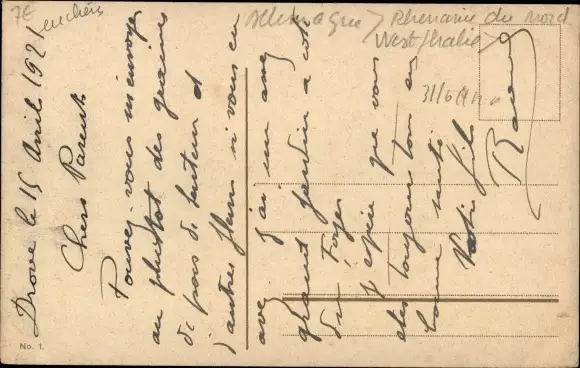 7€
enchère
Allemagne > Rhénanie du Nord
Westphalie >
Drove le 15 Avril 1921
Chers Parents
Pouvez-vous m'envoyer
au plus tot des graines
de pois de senteur et
d'autres fleurs si vous en
avez j'ai un
grand jardin a coté
du Foyer
J'espère que vous
etes toujours tous en
bonne santé
Votre fils
No. 1.